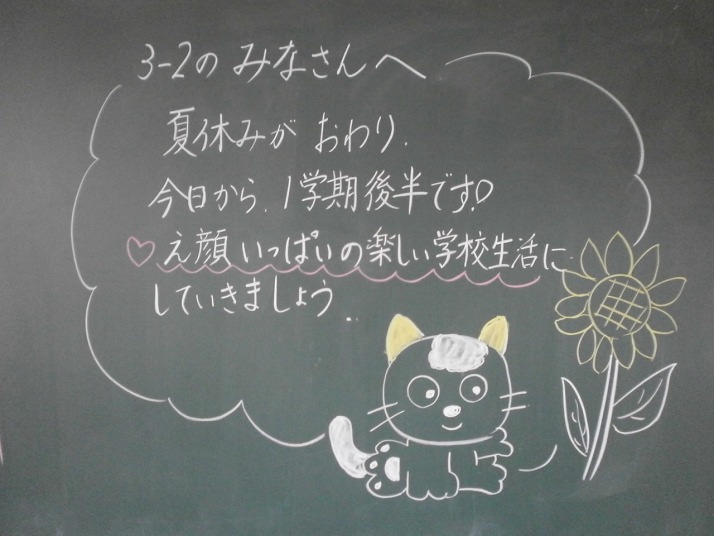 3-2の みなさんへ
夏休みが おわり.
今日から. 1学期後半です!♡
♡え顔いっぱいの楽しい学校生活に
していきましょう..